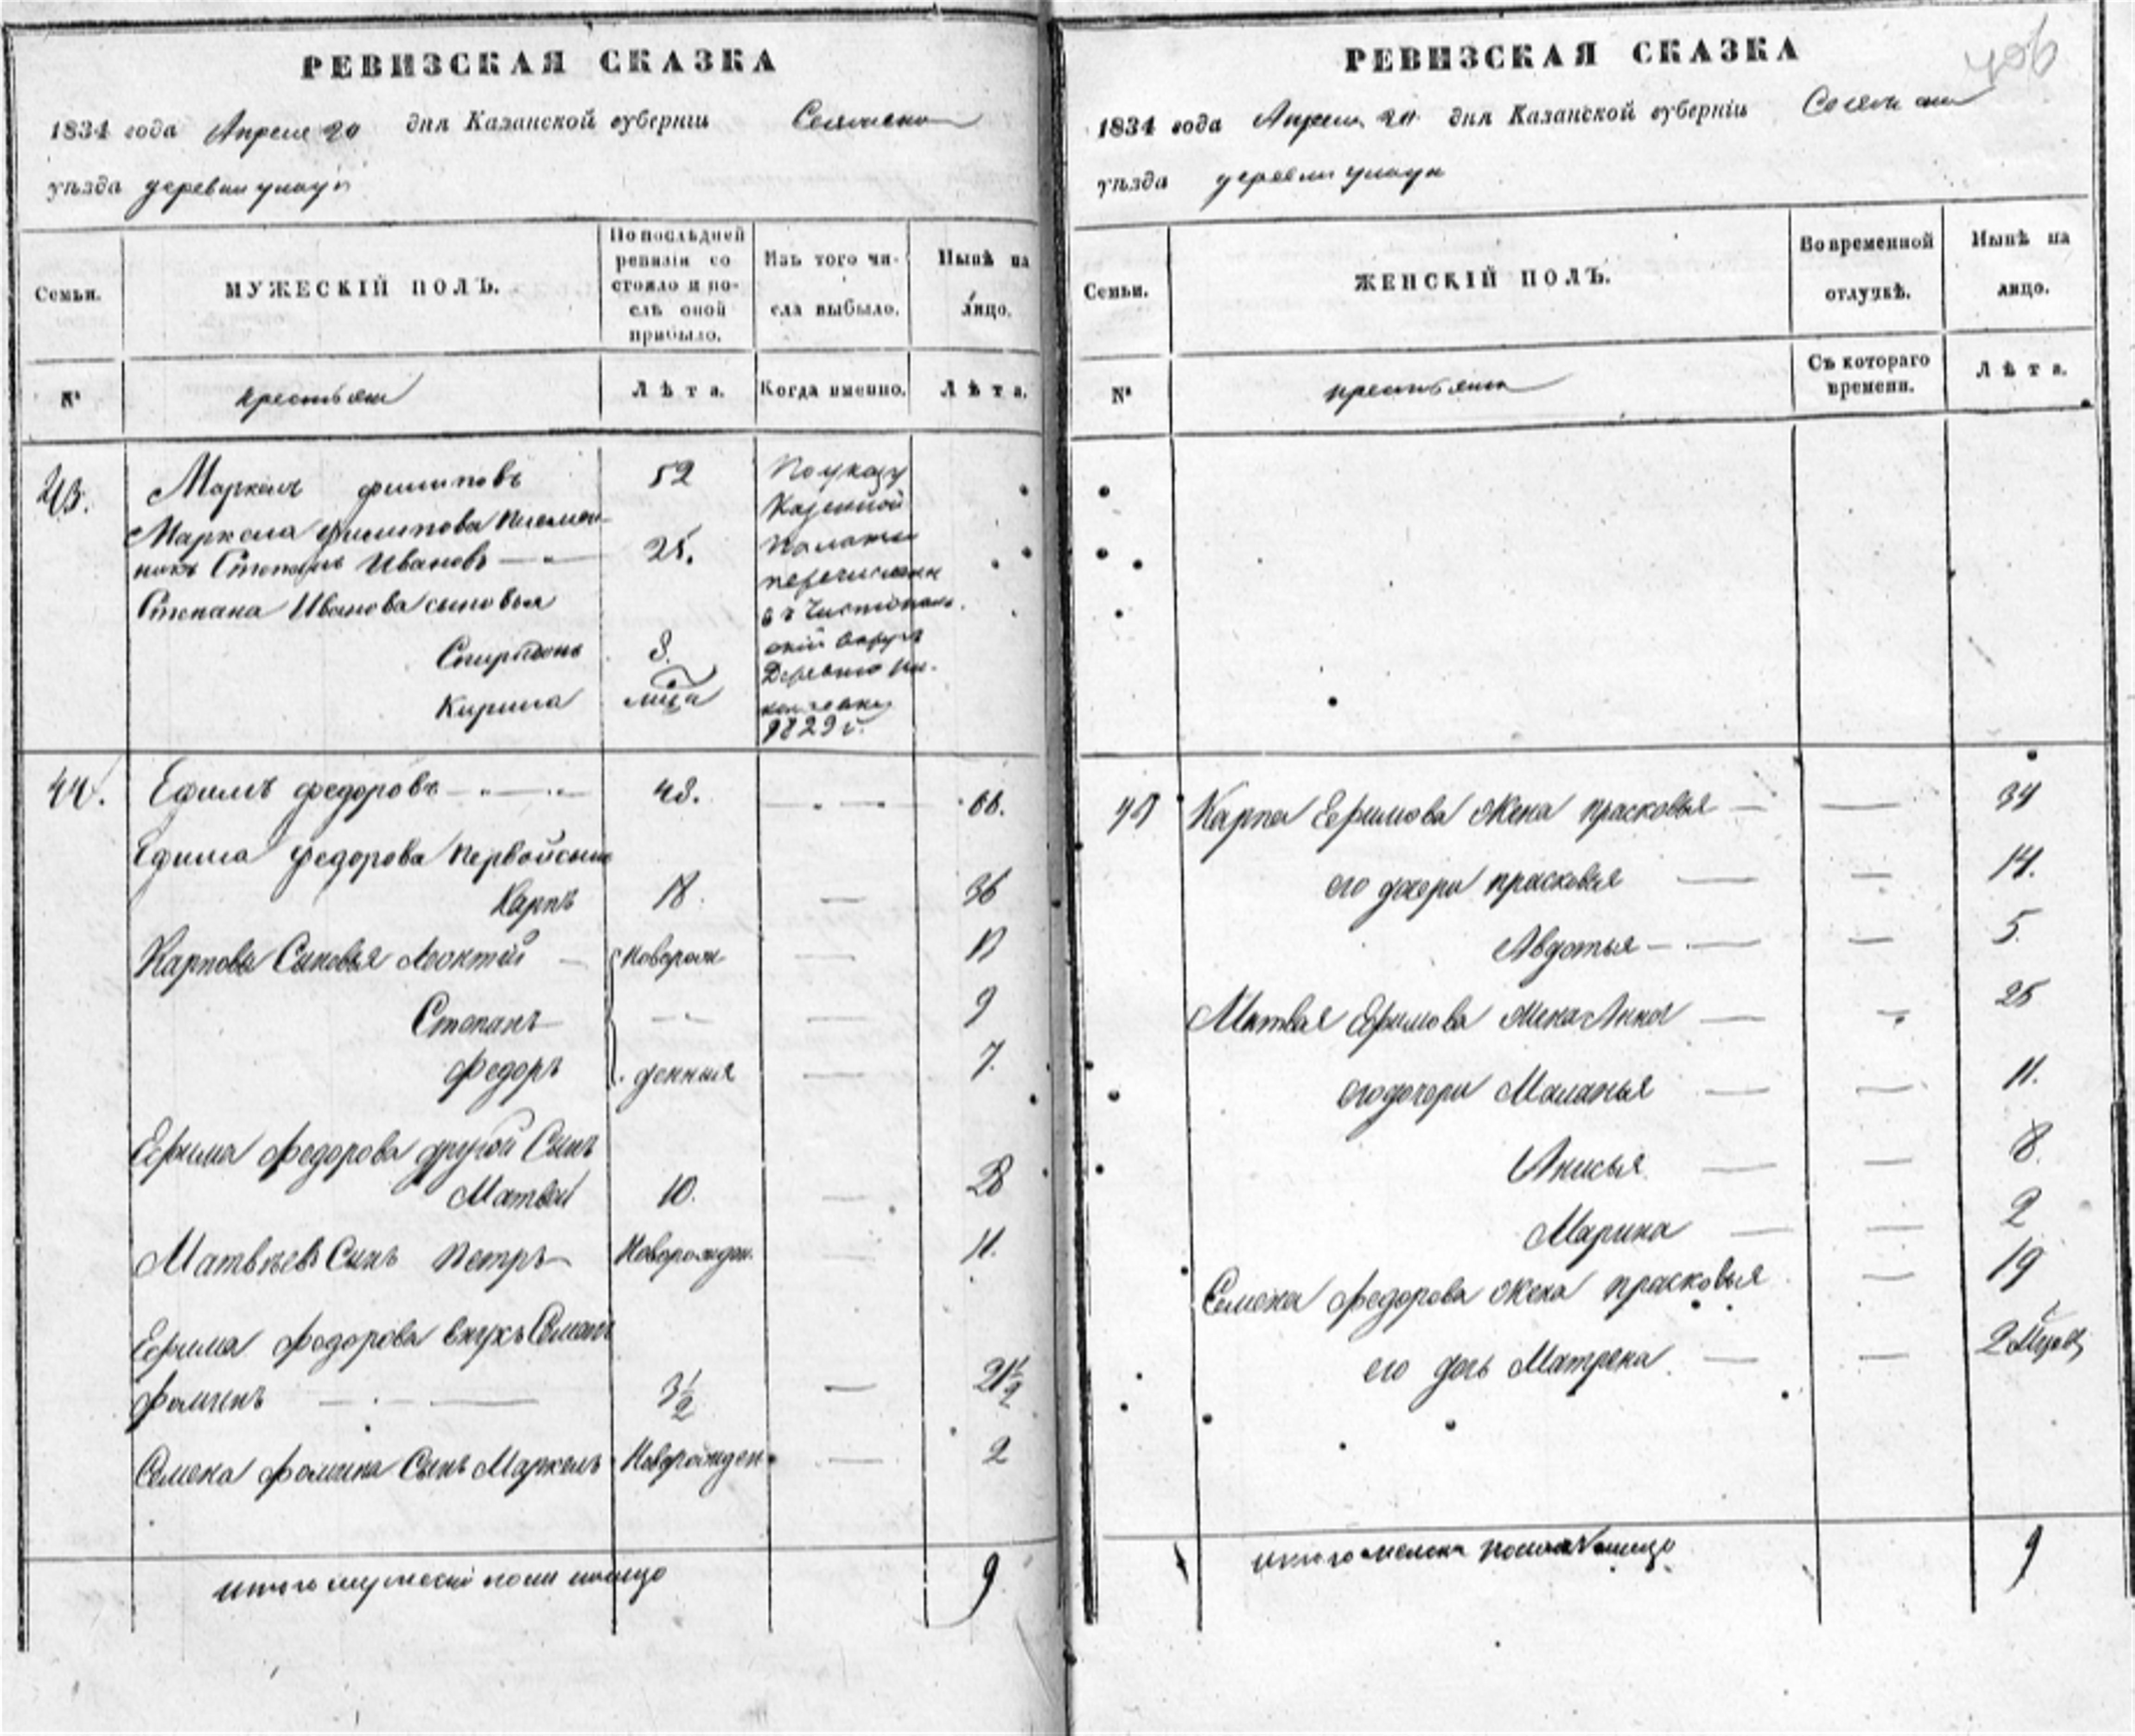 РЕВИЗСКАЯ СКАЗКА
1834 года Апреля 20 дня Казанской губерніи
уѣзда деревни
Семьи.
МУЖЕСКІЙ ПОЛЪ.
По послѣдней ревизіи состояло и послѣ оной прибыло.
Изъ того числа выбыло.
Нынѣ на лицо.
№
крестьяне
Лѣта.
Когда именно.
Лѣта.
43.
Маркелъ филиповъ 52
Маркела филипова племян-
никъ Степанъ Ивановъ 25.
Степана Иванова сыновья
Спиридонъ 8.
Кирила
По указу
Казенной
Палаты
перечислены
въ Чистополь-
ской округъ
Деревню
1829 г.
44. Ефимъ федоровъ 48. 66.
Ефима федорова первой сынъ
Карпъ 18. 36
Карповы Сыновья Леонтий Новорож
Степанъ 9
Федоръ денныя 7.
Ефима Федорова другой Сынъ
Матвей 10. 28
Матвѣевъ Сынъ Петръ Новорожден. 11.
Ефима Федорова внукъ Семенъ
Фоминъ 3½ 21½
Семена Фомина Сынъ Маркелъ Новорожден 2
итого мужеска пола налицо 9
РЕВИЗСКАЯ СКАЗКА
706
1834 года Апреля 20 дня Казанской губерніи
уѣзда деревни
Семьи.
ЖЕНСКІЙ ПОЛЪ.
Во временной отлучкѣ.
Нынѣ на лицо.
№
крестьяне
Съ котораго времени.
Лѣта.
Карпа Ефимова жена прасковья 34
его дочери прасковья 14.
Авдотья 5.
Матвея Ефимова жена Анна 25
его дочери Маланья 11.
Анисья 8.
Марина 2
Семена Федорова жена прасковья 19
его дочь Матрена 2
итого женска пола налицо 9